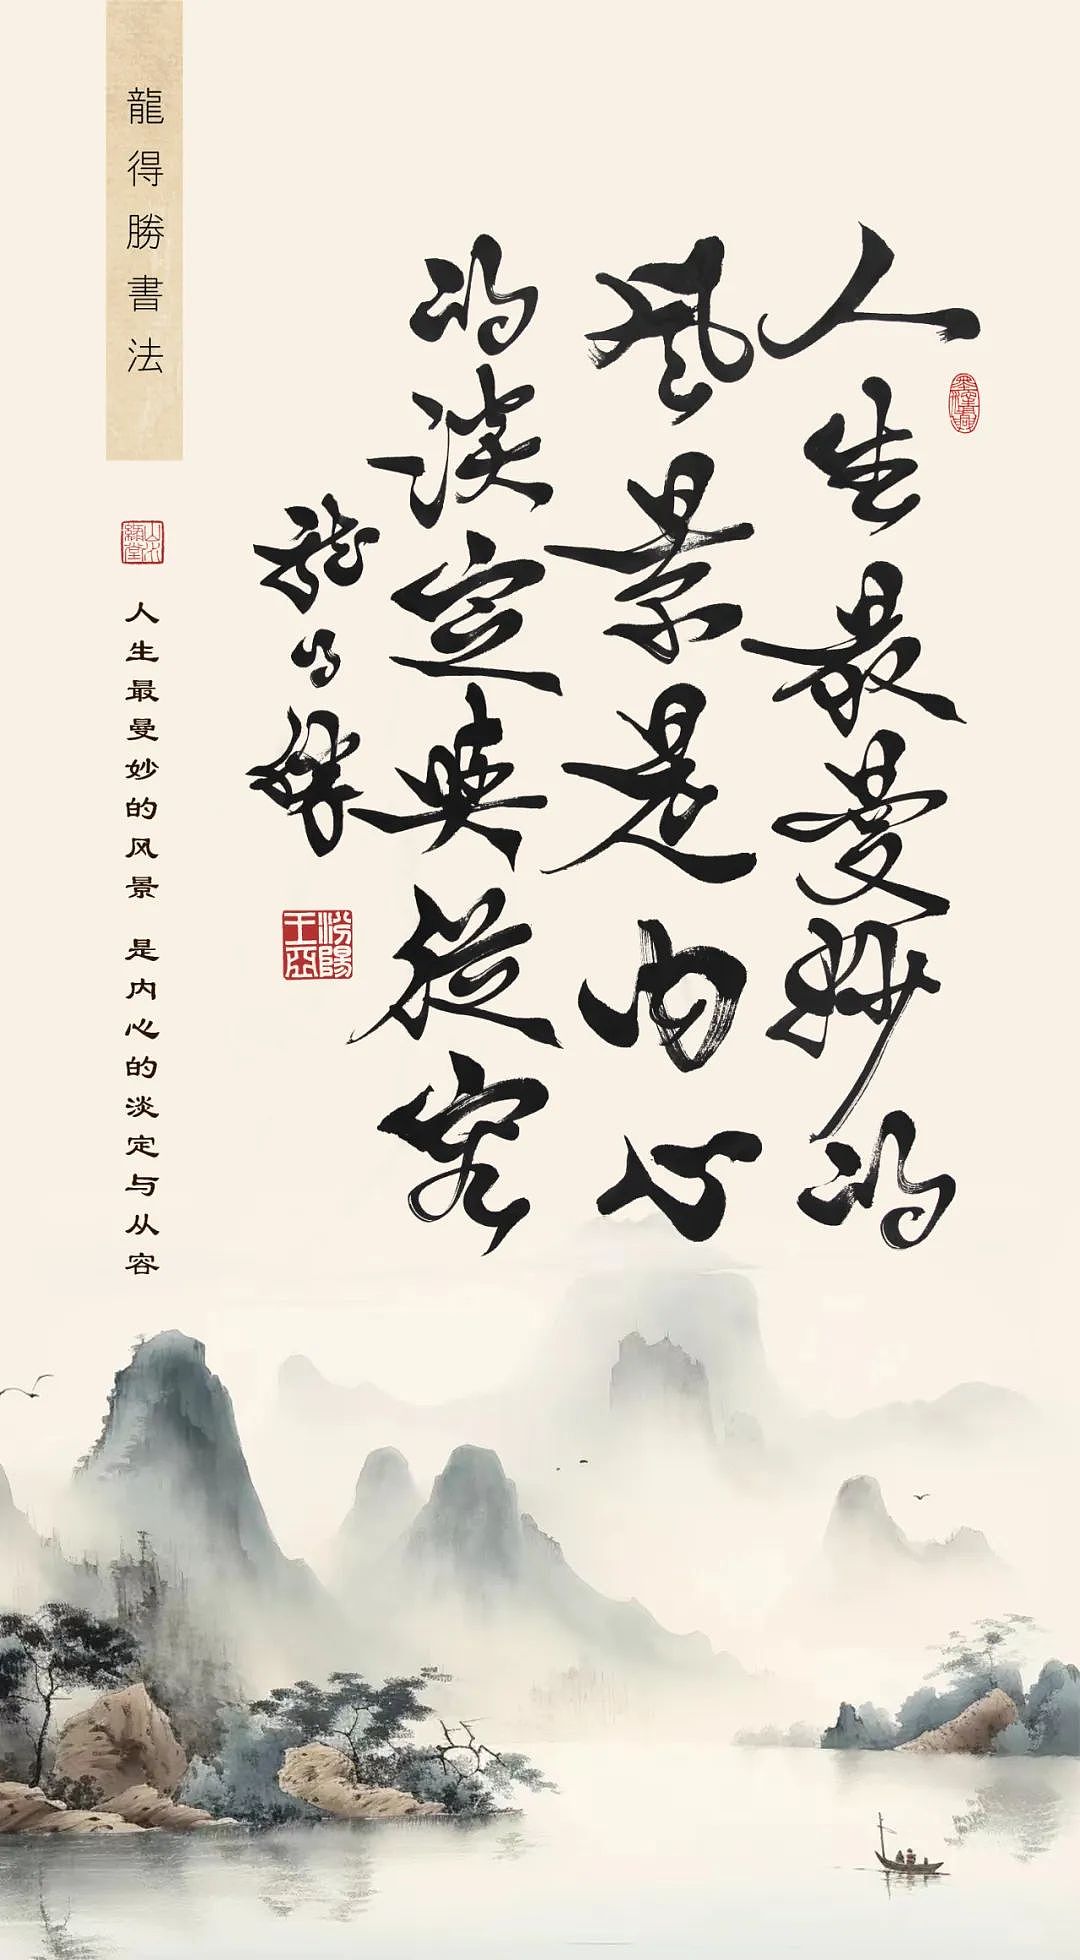 人生最曼妙的
风景是内心
的淡定与从容
龍得勝
龍得勝書法
人生最曼妙的风景 是内心的淡定与从容